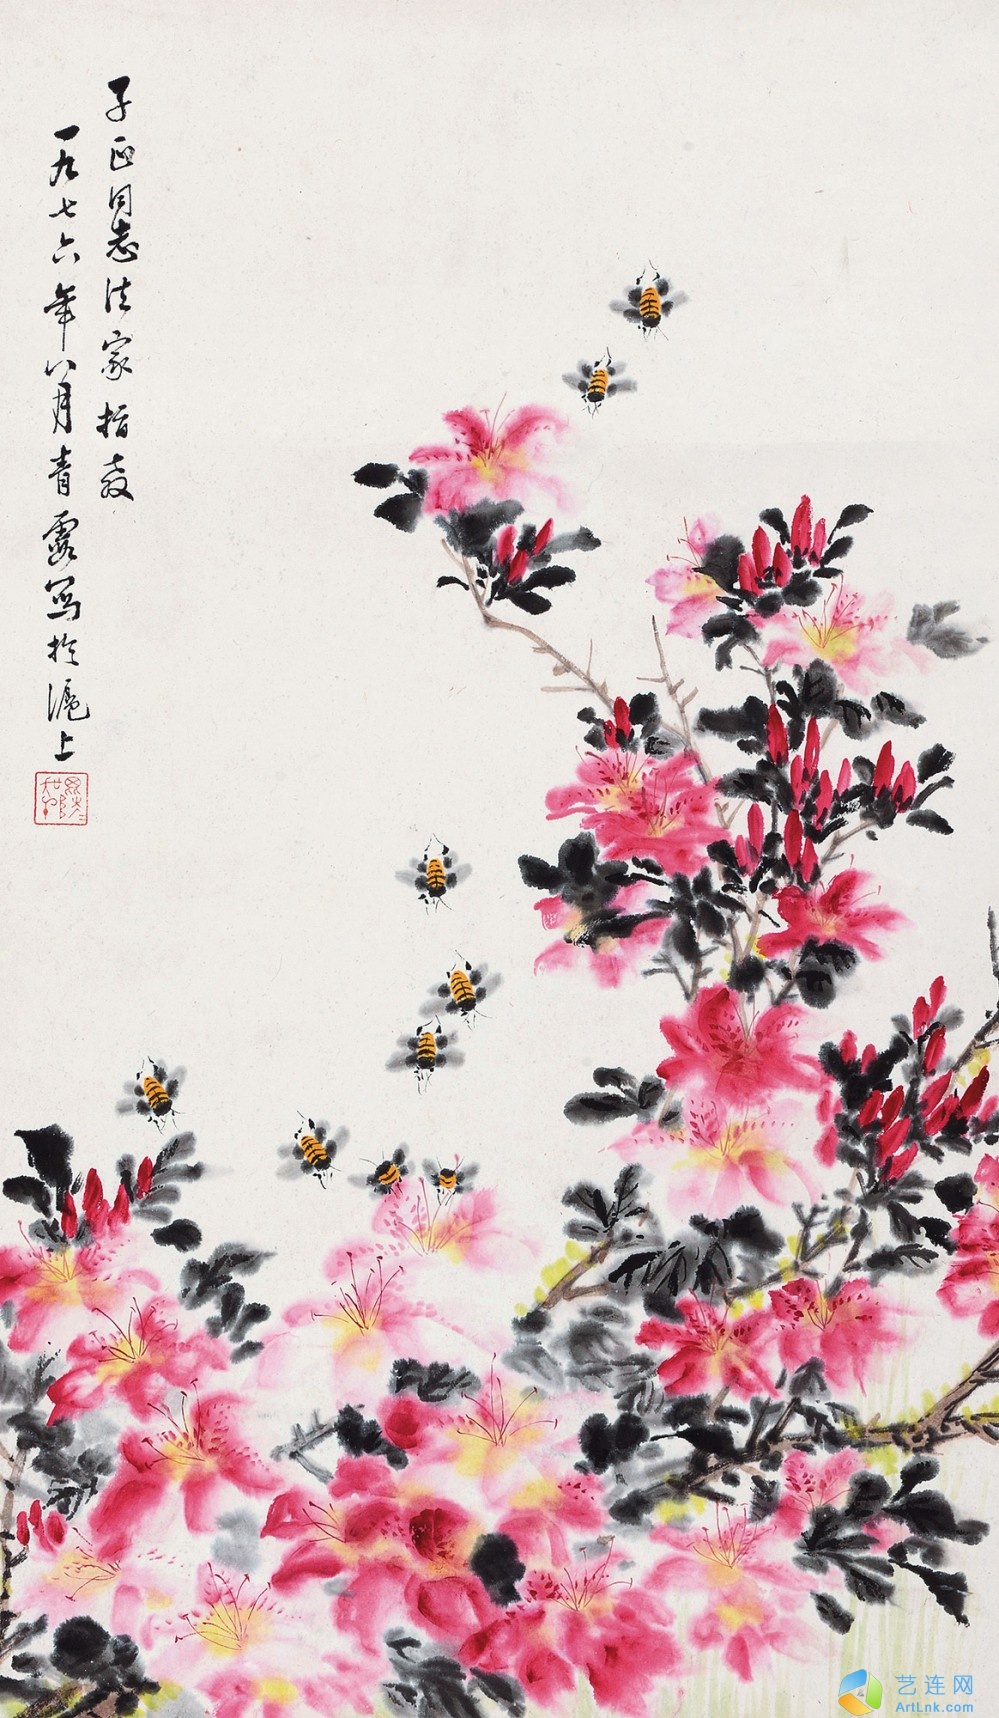 子正同志法家指教
一九七六年八月青霞写於沪上
艺连网
ArtLnk.com